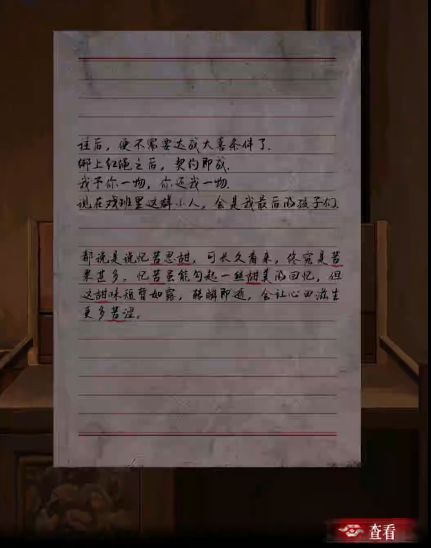 往后，便不需要达成大喜条件了.
绑上红绳之后，契约即成.
我予你一物，你还我一物.
现在戏班里这群小人，会是我最后的孩子们.
都说是说忆苦思甜，可长久看来，终究是苦
果甚多。忆苦虽能勾起一丝甜美的回忆，但
这甜味短暂如露，转瞬即逝，会让心田滋生
更多苦涩。
查看